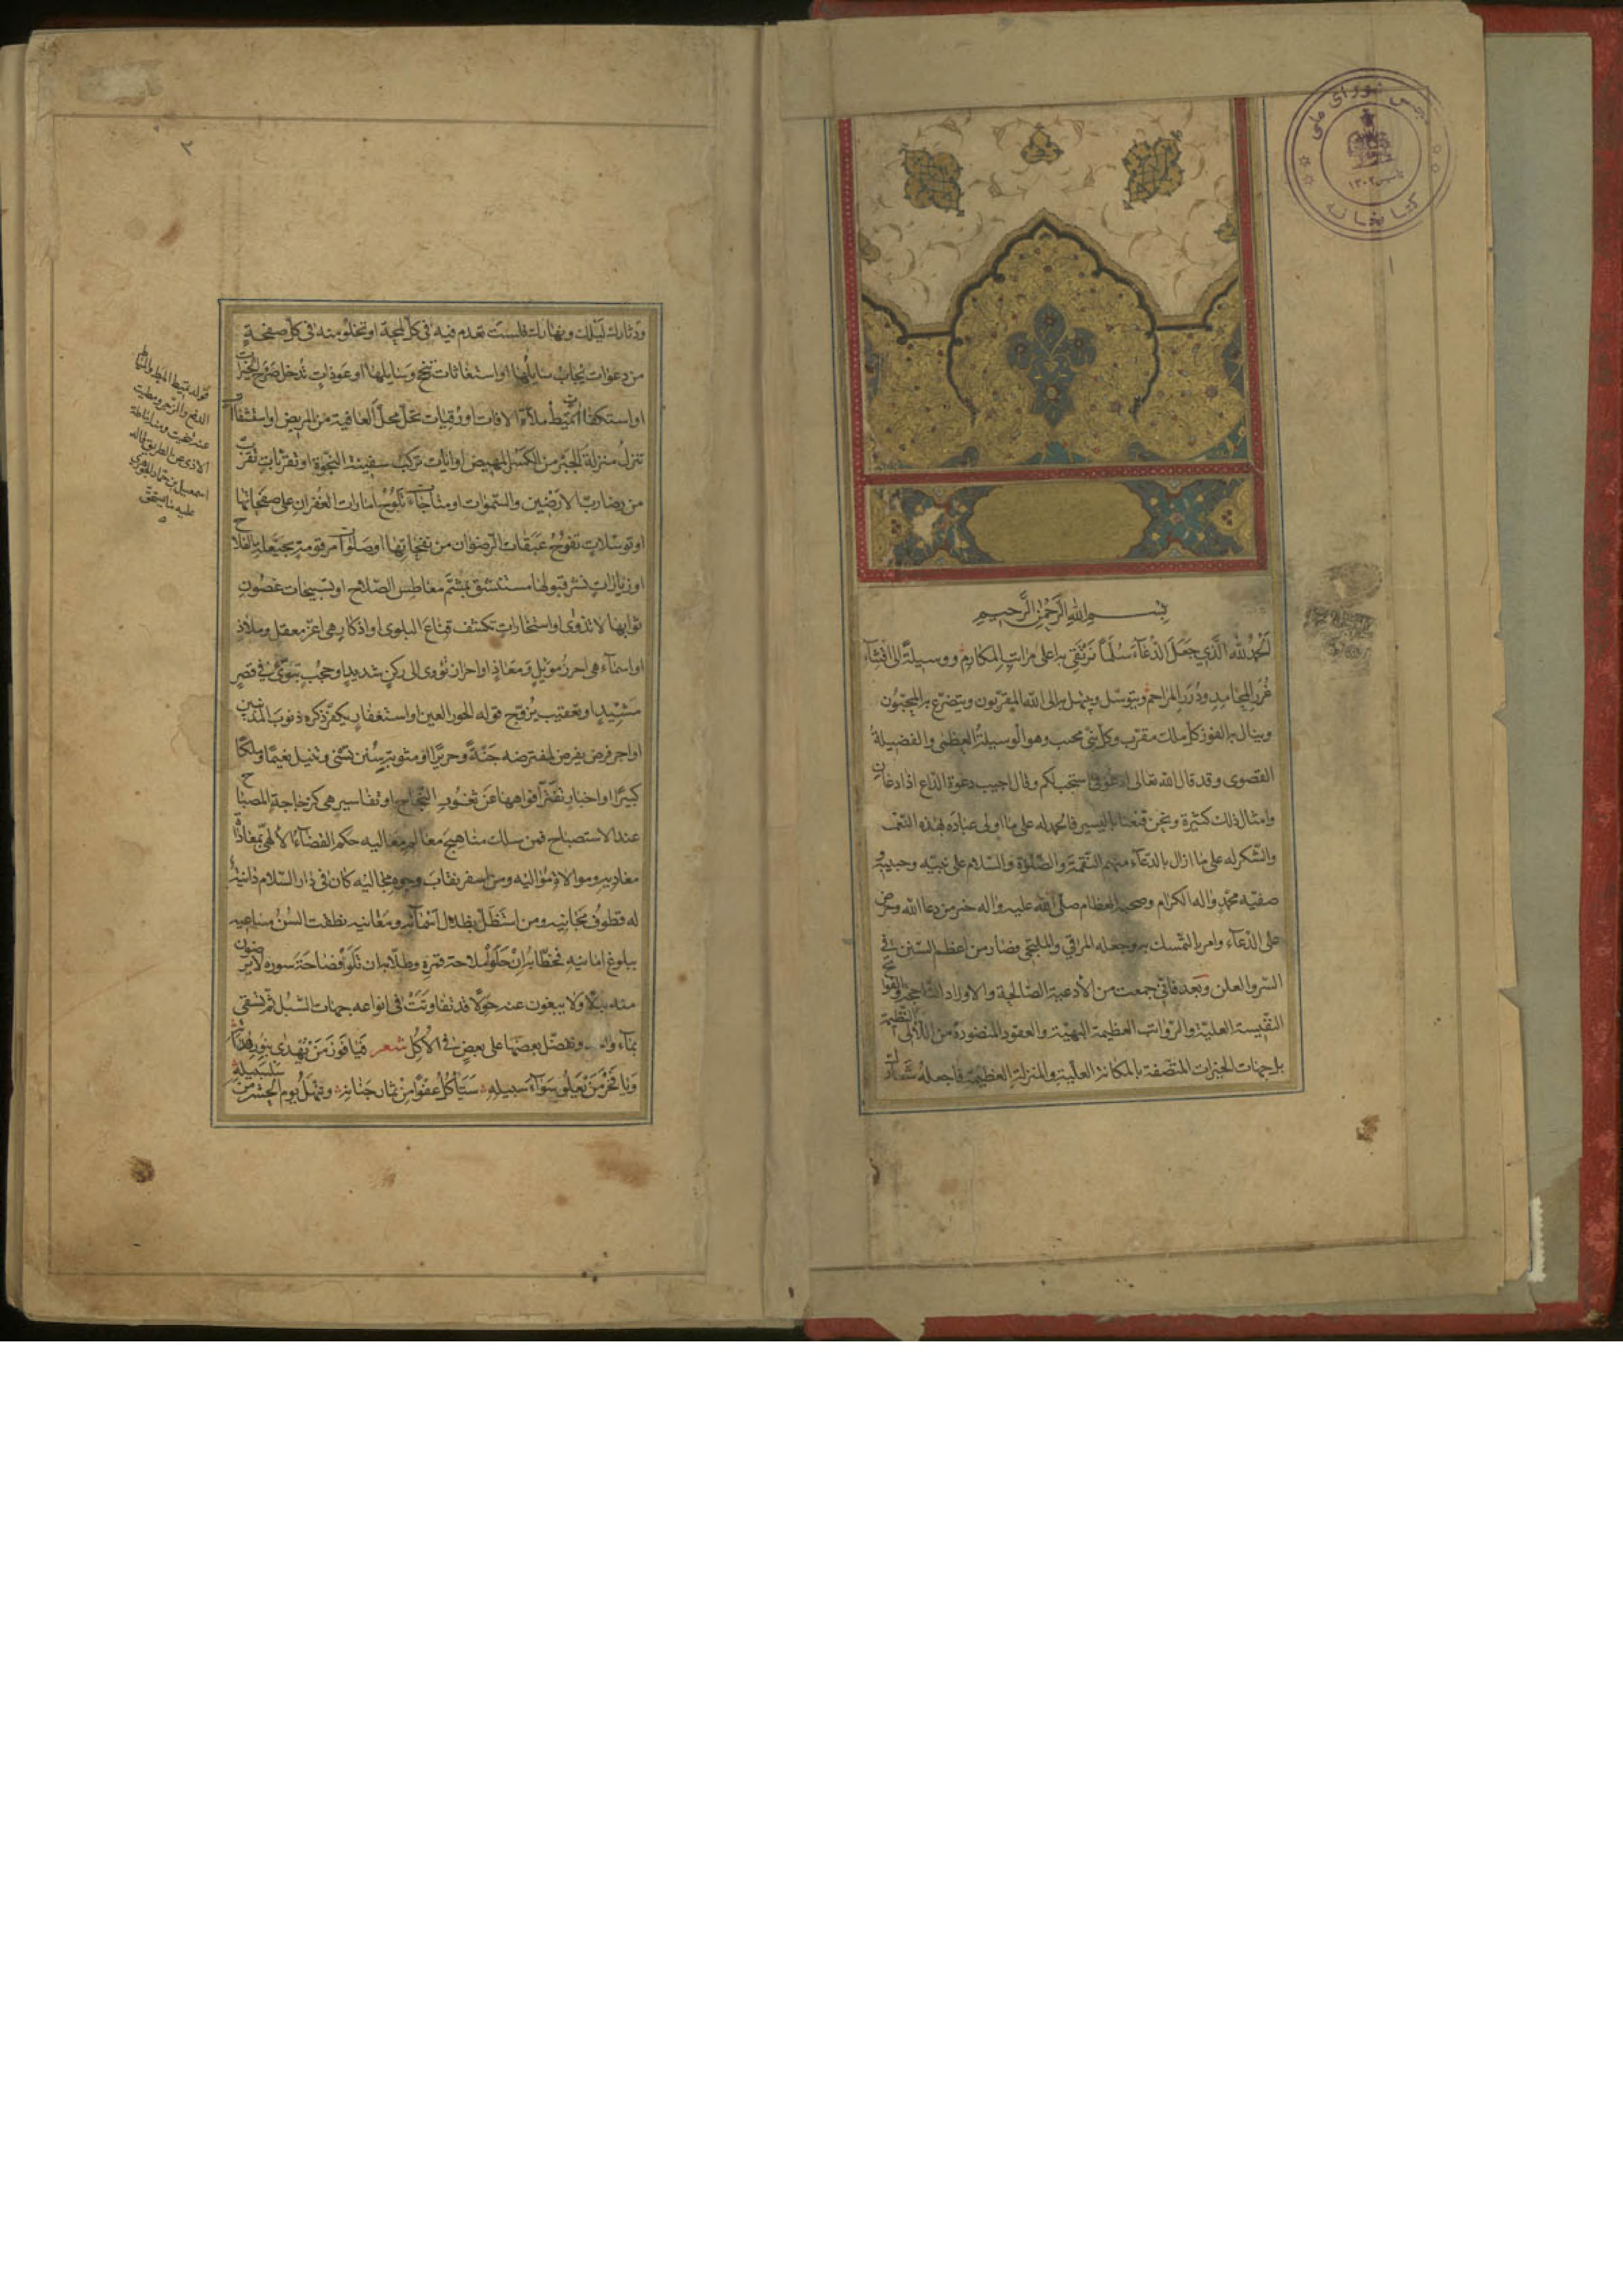 بسم الله الرحمن الرحيم
الحمد لله الذي جعل الدعاء سلما نرتقي به اعلى مراتب المكارم ووسيلة الى اقتناء
غرر المحامد ودرر المراحم ويتوسل ويبتهل به الى الله المقربون ويتضرع به المحبتون
وينال به الفوز كل ملك مقرب وكل نبي محب وهو الوسيلة العظمى والفضيلة
القصوى وقد قال الله تعالى ادعوني استجب لكم وقال اجيب دعوة الداع اذا دعان
وامثال ذلك كثيرة ونحن قنعنا باليسير فالحمد له على ما اولى عباده بهذه النعم
والشكر له على ما ازال بالدعاء منهم النقمة والصلوة والسلام على نبيه وحبيبه و
صفيه محمد واله الكرام وصحبه العظام صلى الله عليه واله خير من دعا الله وحرض
على الدعاء وامر بالتمسك به وجعله المراقي والملتجى وصار من اعظم السنن في
السر والعلن وبعد فاني جمعت من الادعية الصالحة والاوراد
النفيسة العلية والمراتب العظيمة البهية والعقود المنضودة من اللآلي النظيمة
بل جهات الخيرات المتصفة بالمكانة العلية والمنزلة العظيمة فاجعله شعارك
٢
ودثارك ليلك ونهارك فلست تعدم فيه في كل لمحة او تخلو منه في كل صفحة
من دعوات يجاب سايلها او استغاثات تنجح وسايلها او عوذات تدخل صرح الخيرات
او استكفاآت تميط ملاءة الافات او رقيات تحل محل العافية من المريض او استشفاآت
تنزل منزلة الجبر من الكسر المهيض او ايات تركب سفينة النجوة او تقربات تقرب
من رضا رب الارضين والسموات او مناجات تلوح امارات الغفران على صفحاتها
او توسلات تفوح عبقات الرضوان من نفحاتها او صلوات مرقومة بحيعلة الفلاح
او زيارات نشر قبولها مستنشق بمشم معاطس الصلاح او تسبيحات غصون
ثوابها لا تذوى او استخارات تكشف قناع البلوى او اذكار هي اعز معقل وملاذ
او اسماء هي احرز موئل ومعاذ او احراز تؤوى الى ركن شديد او حجب تبوئ في قصر
مشيد او تعقيب يزوج قوله الحور العين او استغفار يكفر ذكره ذنوب المذنبين
او اجر فرض يفرض لمفترضه جنة وحريرا او مثوبة سنن تسنى وتنيل نعيما وملكا
كبيرا او اخبار تفتر افواهها عن ثغور النجاح او تفاسير هي كزجاجة المصباح
عند الاستصباح فمن سلك مناهج معالم معاليه حكم القضاء الالهي بمعاداة
معاديه وموالاة مواليه ومن اسفر نقاب وجوه مجاليه كان في دار السلام دانية
له قطوف مجانيه ومن استظل بظلال اسمائه ومغانيه نطقت السن مساعيه
ببلوغ امانيه فخطابه ان حلو ملاحته قمره وطلابه ان تلو فصاحة سوره لا يرضون
منه بدلا ولا يبغون عنه حولا قد تفاوتت في انواعه جهات السبل ثم تسقى
بماء واحد ونفضل بعضها على بعض في الاكل شعر فيا فوز من يهدى بنور
ويا فخر من يعلو سواء سبيله سيأكل عفوا من ثمار جنانه وينهل يوم الحشر من سلسبيله
قوله تميط الميط والمياط
الدفع والزجر ومطت
عنه تنحيت ومنه اماطة
الاذى عن الطريق قاله
اسمعيل بن حماد الجوهري
عليه ما يستحق
كتابخانه
مجلس شورای ملی
١٣٠٢